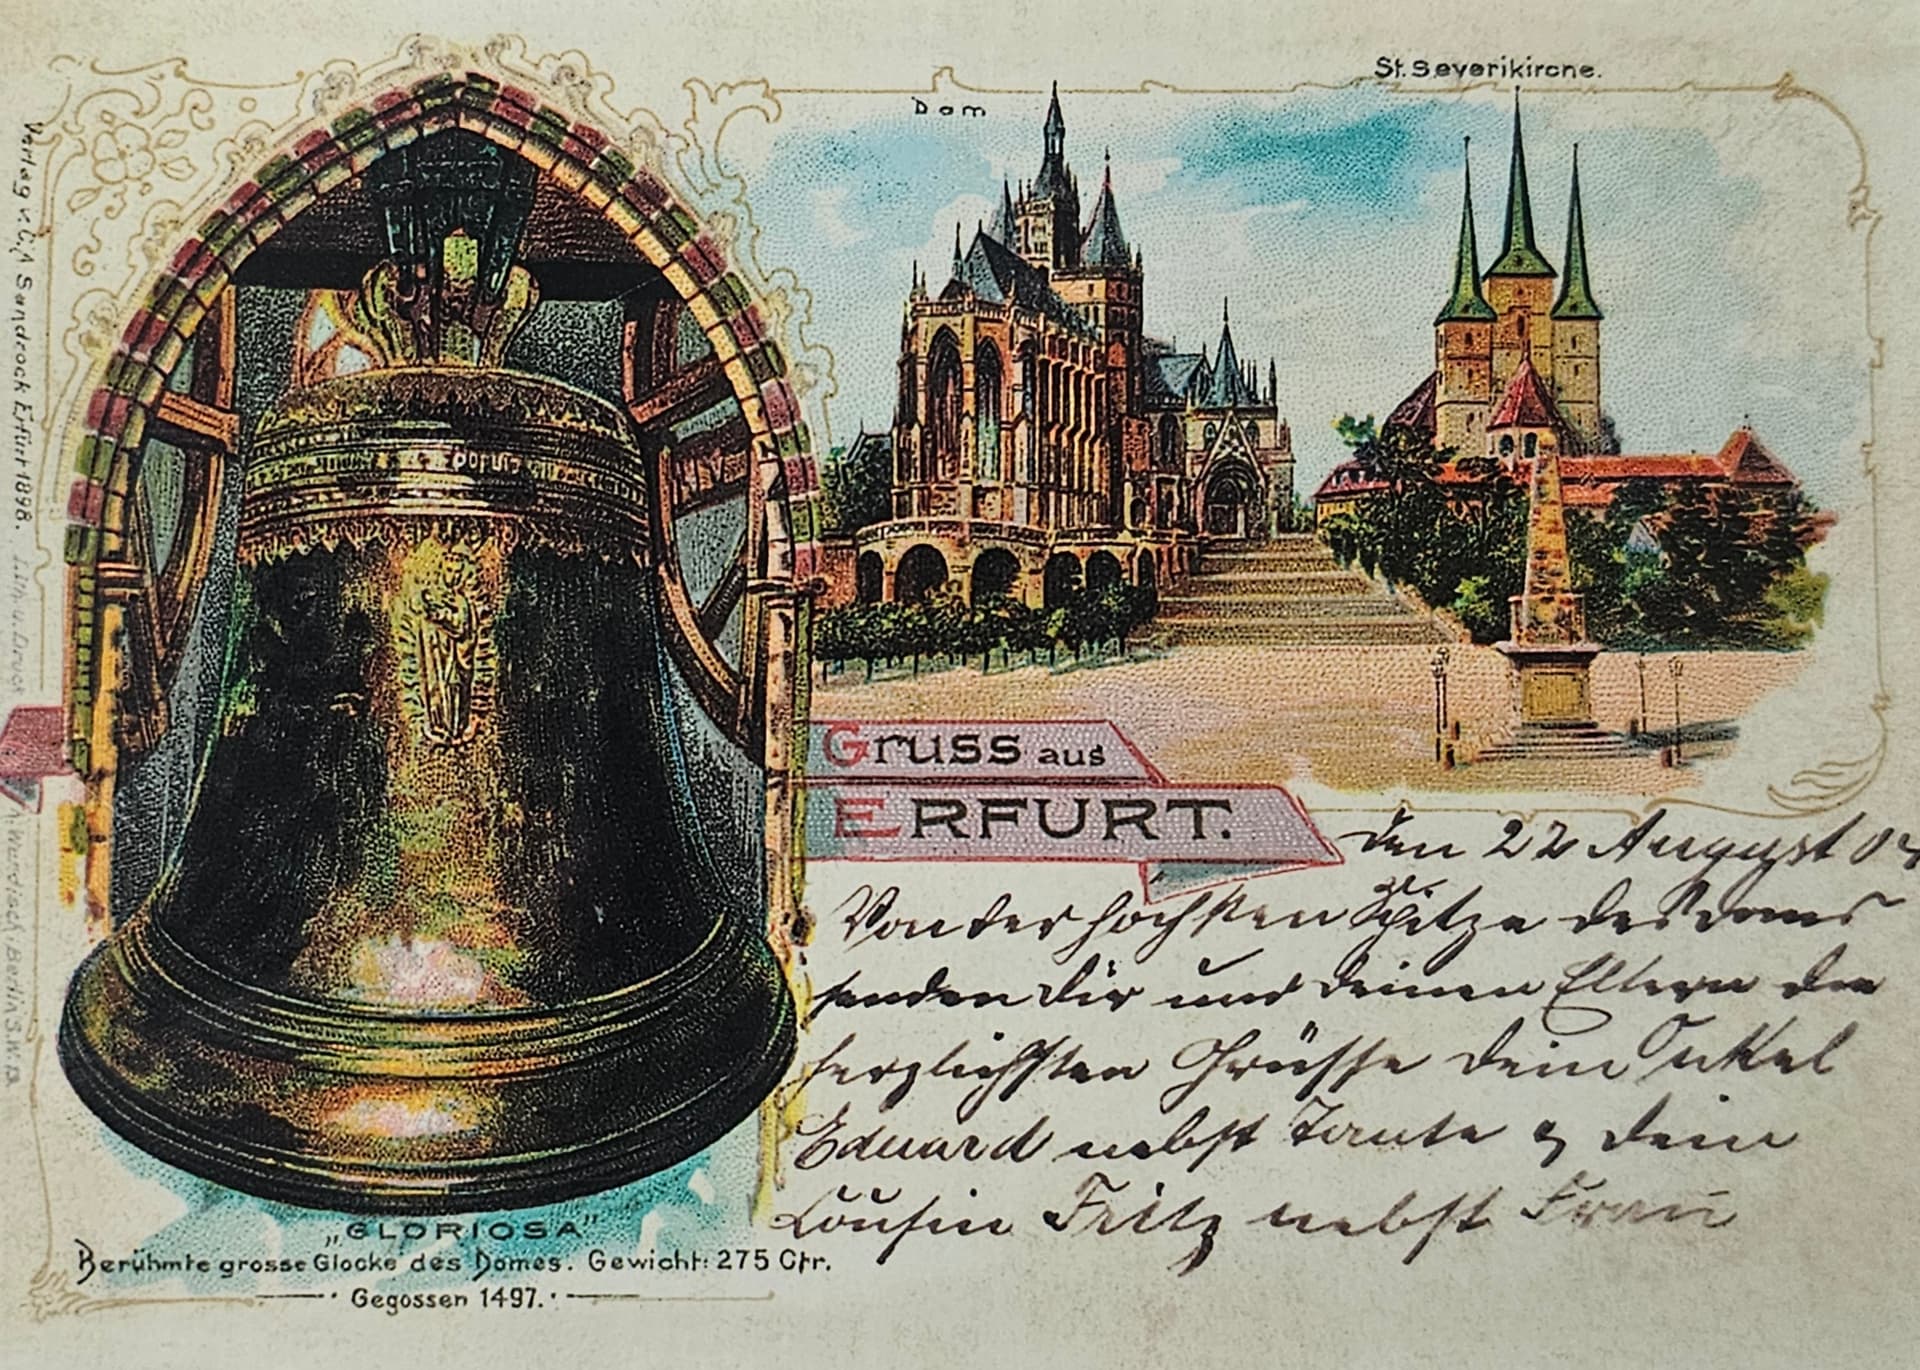 St. Severikirche.
Dom
Verlag v. C. A Sandrock Erfurt 1898. Lith. u. Druck A. Wardisch. Berlin S.W. 13
populo
Gruss aus
ERFURT.
den 22 August 04
Von der höchsten Spitze des Doms
senden Dir und deinen Eltern die
herzlichsten Grüsse dein Onkel
Eduard nebst Tante & dein
Cousin Fritz nebst Frau
„GLORIOSA"
Berühmte grosse Glocke des Domes. Gewicht: 275 Ctr.
Gegossen 1497.